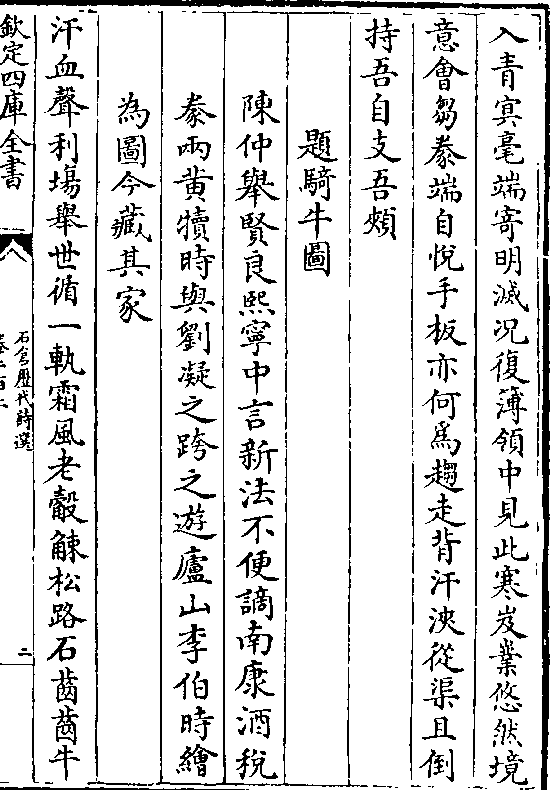 入青㝠毫端寄明滅况復簿領中見此寒岌業悠然境
意會芻豢端自悅手板亦何為趨走背汗浹從渠且倒
持吾自支吾頰
題騎牛圖
陳仲舉賢良熙寧中言新法不便謫南康酒稅
豢兩黄犢時與劉凝之跨之遊廬山李伯時繪
為圖今藏其家
汗血聲利塲舉世循一軌霜風老觳觫松路石齒齒牛
欽定四庫全書
石倉歷代詩選
卷二百二
二